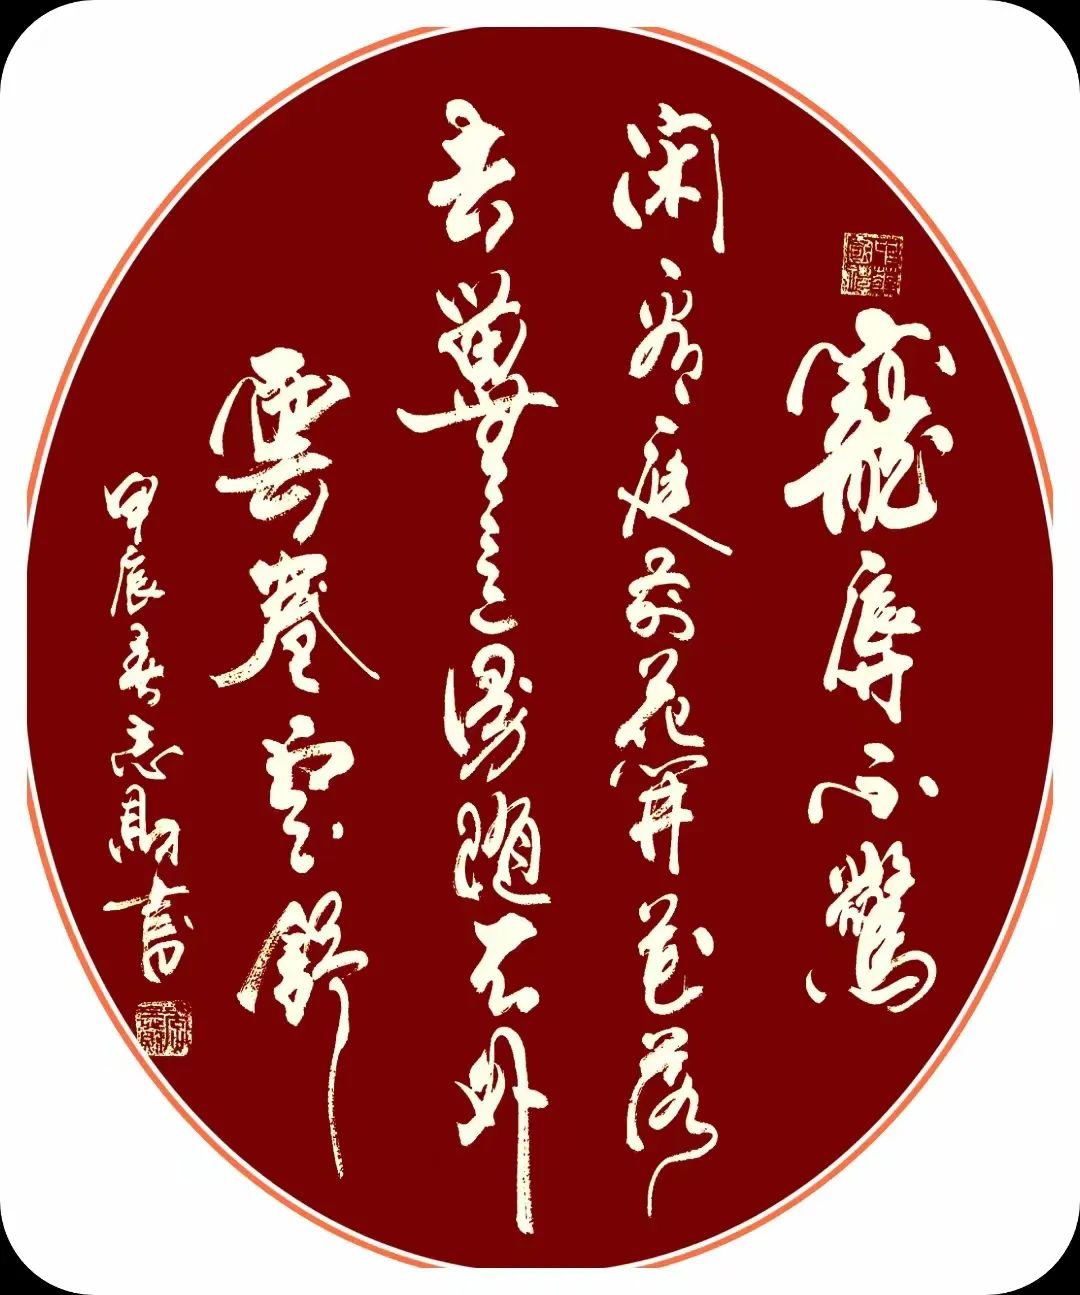 寵辱不驚
閑看庭前花開花落
去留無意漫隨天外
雲卷雲舒
甲辰春志財書